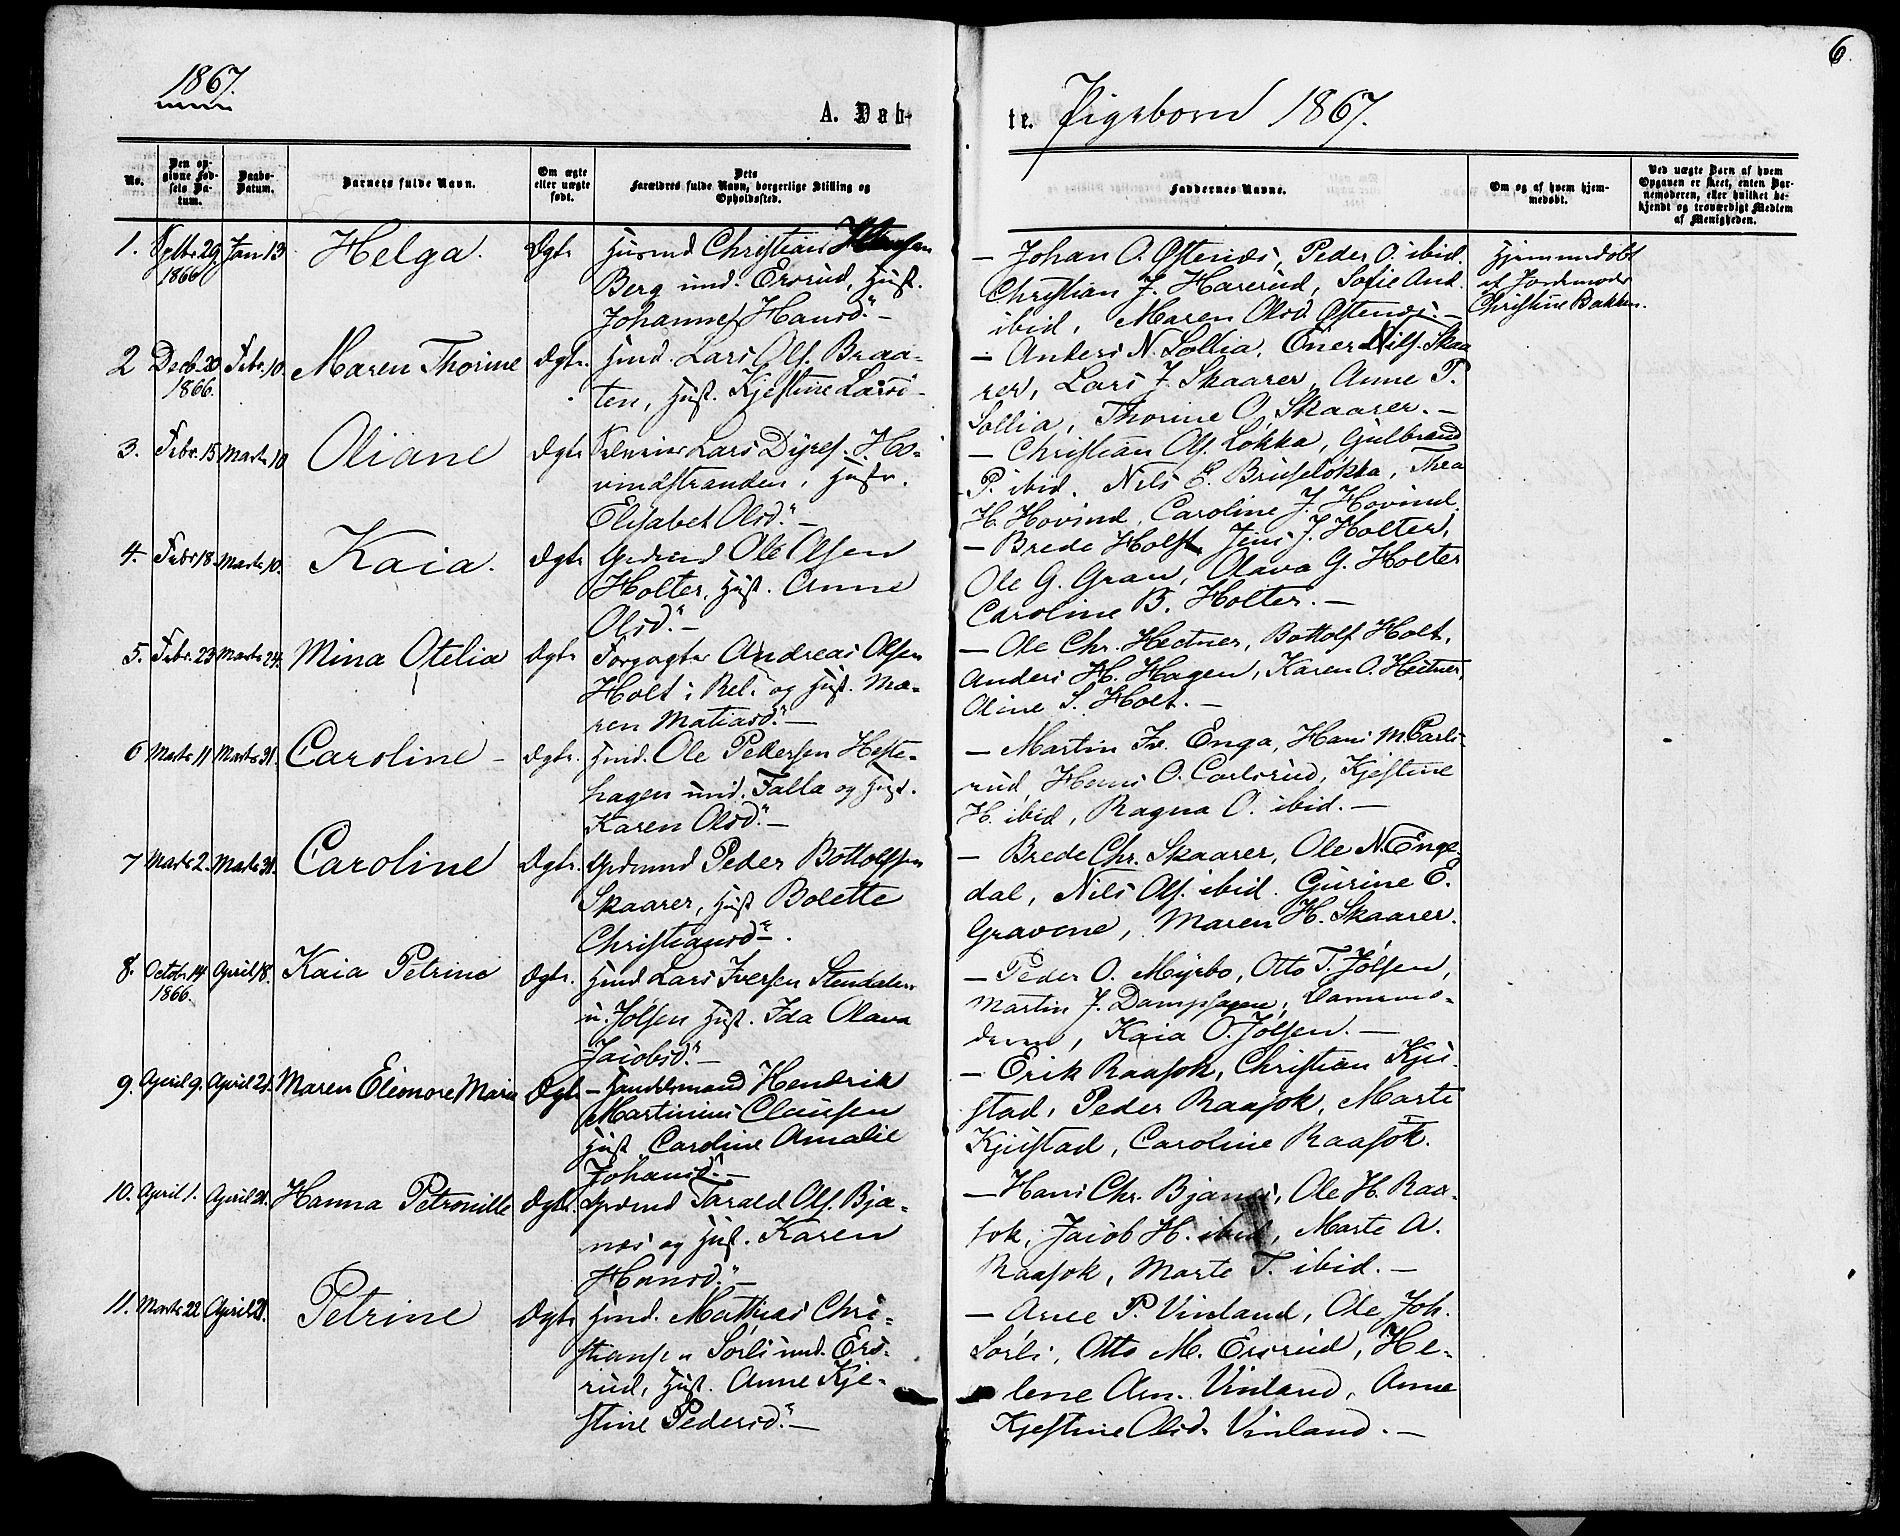 6.
1867.
A. Dab-
te. Pigeborn 1867.
No.
Den op-
givne Fød-
sels Da-
tum.
Daabs-
Datum.
Barnets fulde Navn.
Om ægte
eller uægte
født.
Dets
Forældres fulde Navn, borgerlige Stilling og
Opholdssted.
Faddernes Navne.
Om og af hvem hjem-
medøbt.
Ved uægte Børn af hvem
Opgaven er skeet, enten Bar-
nemoderen, eller hvilket be-
kjendt og troværdigt Medlem
af Menigheden.
1. Septbr. 29 Jan. 13 Helga. Ægte Husmd Christian Hansen
1866
Berg und. Ersrud, Hust.
Johanne Hansd. -
- Johan O. Østenæs, Peder O. ibid.
Christian J. Harerud, Sofie And.
ibid, Maren Olsd. Østenæs. -
Hjemmedøbt
af Jordemoder
Christine Bakken.
2 Decb. 20 Febr. 10. Maren Thorine Ægte. Hmd. Lars Ols. Braa-
1866.
ten, Hust. Kjestine Larsd. -
- Anders N. Sollia, Ener Nils. Skaa
rer, Lars J. Skaarer, Anne P.
Sollia, Thorine O. Skaarer. -
3. Febr. 15 Marts 10 Oliane Ægte Lars Dyres. Ho-
vindstranden, Hustr.
Elisabet Olsd. -
- Christian Ols. Løkka, Gulbrand
P. ibid. Nils E. Bruseløkka, Thea
H. Hovind, Caroline J. Hovind.
4. Febr. 18. Marts 10. Kaia. Ægte Grdmd Ole Olsen
Holter, Hust. Anne
Olsd. -
- Brede Holst, Jens J. Holter,
Ole G. Gran, Olava G. Holter
Caroline B. Holter. -
5. Febr. 23 Marts 24. Mina Otelia Ægte Forpagter Andreas Olsen
Holt i Rel. og Hust. Ma-
ren Matiasd. -
- Ole Chr. Hectner, Bottolf Holt,
Anders H. Hagen, Karen O. Hectner,
Oline S. Holt. -
6 Marts 11 Marts 31. Caroline - Ægte. Hmd. Ole Pedersen Heste-
hagen und. Falla og Hust.
Karen Olsd. -
- Martin Fr. Enga, Hans M. Carls-
rud, Hans O. Carlsrud, Kjestine
H. ibid, Ragna O. ibid. -
7 Marts 2. Marts 31. Caroline Ægte. Grdmnd Peder Bottolfsen
Skaarer, Hust Bolette
Christiansd. -
- Brede Chr. Skaarer, Ole N. Enge-
dal, Nils Ols. ibid. Gurine E.
Gravene, Maren H. Skaarer.
8. Octob. 14 April 18. Kaia Petrine Ægte. Hmd Lars Iversen Stendalen
1866.
u. Jølsen Hust. Ida Olava
Jacobsd. -
- Peder O. Myrbo, Otto T. Jølsen,
Martin J. Dampsagen,
Kaia O. Jølsen. -
9. April 9. April 21. Maren Eleonore Marie Ægte - Handelsmand Hendrik
Martinius Clausen
Hust. Caroline Amalie
Johansd. -
- Erik Raasok, Christian Kju-
stad, Peder Raasok, Marte
Kjustad, Caroline Raasok.
10. April 1. April 21. Hanna Petronille Ægte. Grdmd Tarald Ols. Bja-
næs og Hust. Karen
Hansd. -
- Hans Chr. Bjanæs, Ole H. Raa-
sok, Jacob H. ibid, Marte A.
Raasok, Marte T. ibid. -
11. Marts 22 April 21. Petrine Ægte Hmd. Mathias Chri-
stiansen Sørli und. Ers-
rud, Hust. Anne Kje-
stine Pedersd. -
- Arne P. Vinland, Ole Joh.
Sørli, Otto M. Ersrud, He-
lene Arn. Vinland, Anne
Kjestine Olsd. Vinland. -